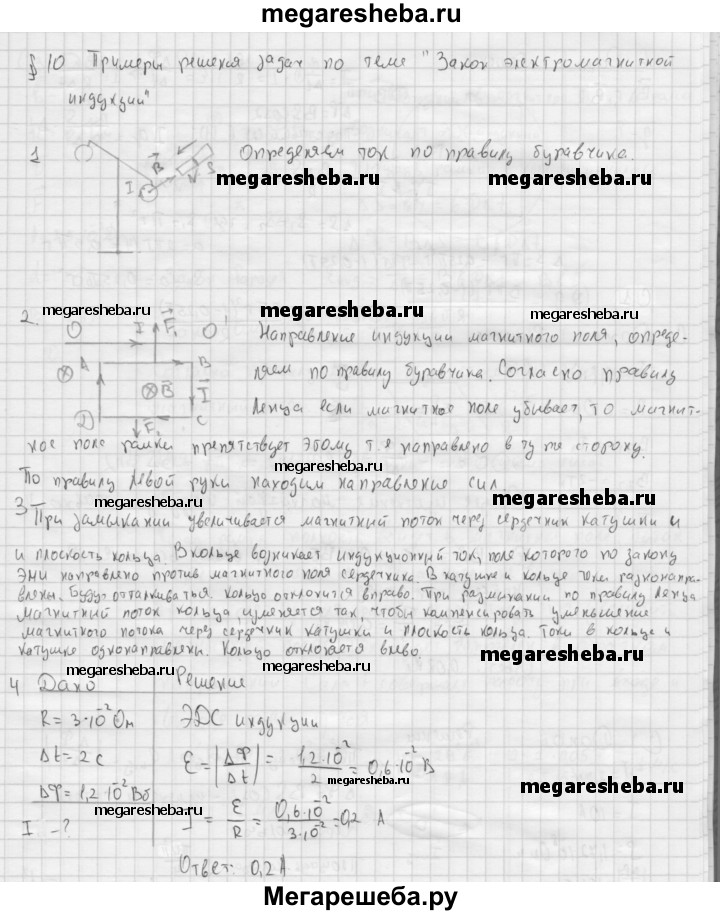 megaresheba.ru
§ 10 Примеры решения задач по теме "Закон электромагнитной
индукции"
1 I B⃗ S Определяем ток по правилу буравчика.
megaresheba.ru megaresheba.ru
megaresheba.ru megaresheba.ru
2. O I F⃗₁ O' Направление индукции магнитного поля, опреде-
A B ляем по правилу буравчика. Согласно правилу
⊗ ⊗B⃗ I⃗
D F⃗₁ C Ленца если магнитное поле убывает, то магнит-
ное поле рамки препятствует этому т.е направлено в ту же сторону.
megaresheba.ru
По правилу левой руки находим направление сил.
megaresheba.ru megaresheba.ru
3 При замыкании увеличивается магнитный поток через сердечник катушки и
и плоскость кольца. В кольце возникает индукционный ток, поле которого по закону
ЭМИ направлено против магнитного поля сердечника. В катушке и кольце токи разнонапра-
влены. Будут отталкиваться. Кольцо отклонится вправо. При размыкании по правилу Ленца
магнитный поток кольца, изменяется так, чтобы компенсировать уменьшение
магнитного потока через сердечник катушки и плоскость кольца. Токи в кольце и
катушке однонаправлены. Кольцо отклоняется влево.
megaresheba.ru
megaresheba.ru megaresheba.ru
4 Дано Решение
R = 3·10⁻² Ом ЭДС индукции
megaresheba.ru
Δt = 2 с ℰ = |ΔΦ/Δt| = 1,2·10⁻²/2 = 0,6·10⁻² В
megaresheba.ru
megaresheba.ru
ΔΦ = 1,2·10⁻² Вб
megaresheba.ru
I - ? I = ℰ/R = 0,6·10⁻²/3·10⁻² = 0,2 А
Ответ: 0,2 А
Мегарешеба.ру